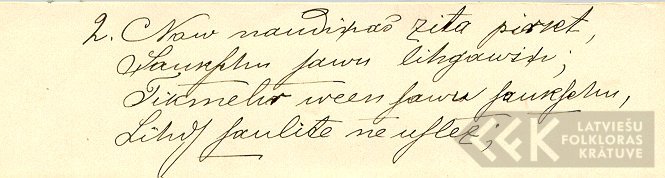 2. Naw naudiņas zita pirkt,
Saukſchu ſawu lihgawiņ;
Tikmehr ween ſawu ſaukſchu,
Lihdſ ſaulite ne uſlez;
LATVIEŠU
FOLKLORAS
KRĀTUVE